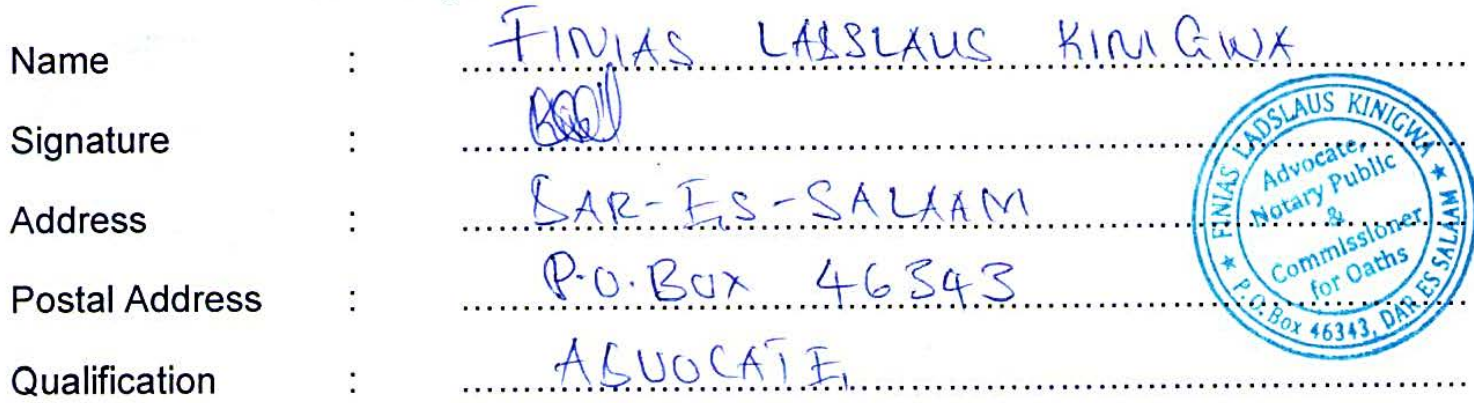 Name : FINIAS LADSLAUS KINIGWA
Signature :
Address : DAR-ES-SALAAM
Postal Address : P.O. Box 46343
Qualification : ADVOCATE
★ FINIAS LADSLAUS KINIGWA ★
P.O. Box 46343, DAR ES SALAAM
Advocate,
Notary Public
&
Commissioner
for Oaths